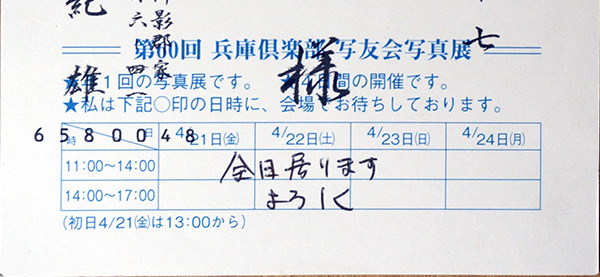 第60回 兵庫倶楽部 写友会写真展
★年1回の写真展です。 ★4日間の開催です。
★私は下記○印の日時に、会場でお待ちしております。
時 日 4/21日(金) 4/22日(土) 4/23日(日) 4/24日(月)
11:00〜14:00
14:00〜17:00
(初日4/21(金)は13:00から)
全日居ります
よろしく
6580048
様
雄
影郡家
六
四
七